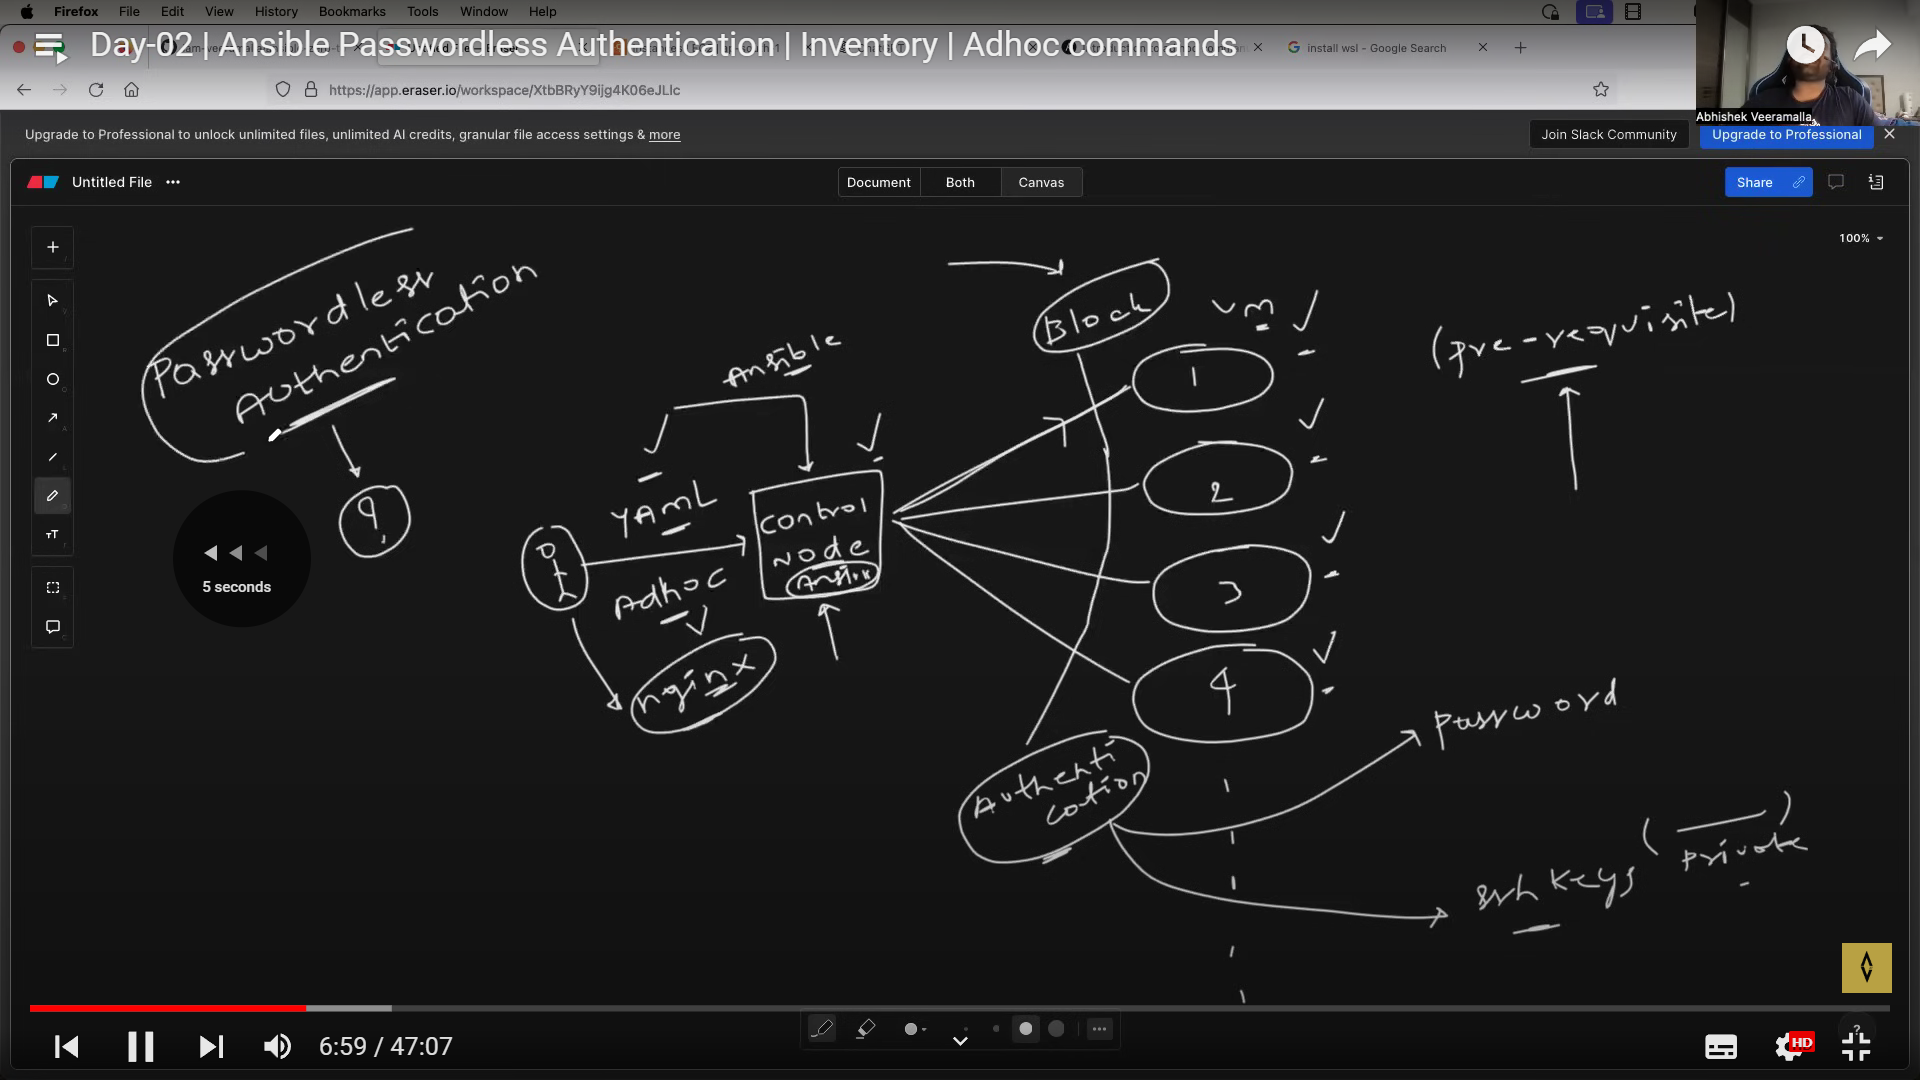 Firefox File Edit View History Bookmarks Tools Window Help
Day-02 | Ansible Passwordless Authentication | Inventory | Adhoc commands
install wsl - Google Search
https://app.eraser.io/workspace/XtbBRyY9ijg4K06eJLlc
Abhishek Veeramalla
Upgrade to Professional to unlock unlimited files, unlimited AI credits, granular file access settings & more
Join Slack Community
Upgrade to Professional
Untitled File
Document Both Canvas
Share
100%
Passwordless
Authentication
?
Ansible
YAML
Adhoc
nginx
Control
Node
Block
vm
1
2
3
4
(pre-requisite)
Authenti
cation
password
ssh keys (private)
5 seconds
6:59 / 47:07
HD